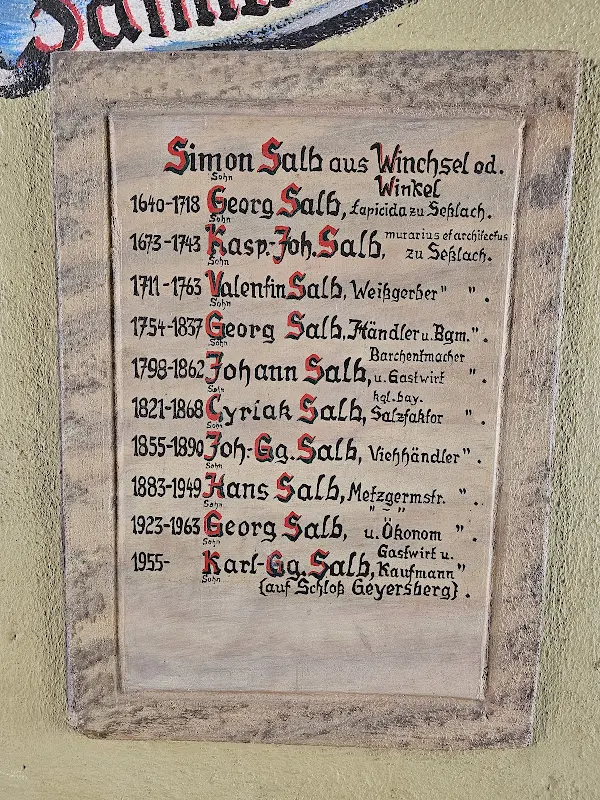 Simon Salb aus Winchsel od.
Winkel
Sohn
1640-1718 Georg Salb, lapicida zu Seßlach.
Sohn
1673-1743 Kasp.-Joh. Salb, murarius et architectus
zu Seßlach.
Sohn
1711-1763 Valentin Salb, Weißgerber " ".
Sohn
1754-1837 Georg Salb, Händler u. Bgm. ".
Sohn
1798-1862 Johann Salb, Barchentmacher
u. Gastwirt ".
Sohn
1821-1868 Cyriak Salb, kgl. bay.
Salzfaktor ".
Sohn
1855-1890 Joh.-Gg. Salb, Viehhändler ".
Sohn
1883-1949 Hans Salb, Metzgermstr. ".
Sohn
1923-1963 Georg Salb, " - "
u. Ökonom ".
Sohn
1955- Karl-Gg. Salb, Gastwirt u.
Kaufmann "
Sohn
{auf Schloß Geyersberg}.